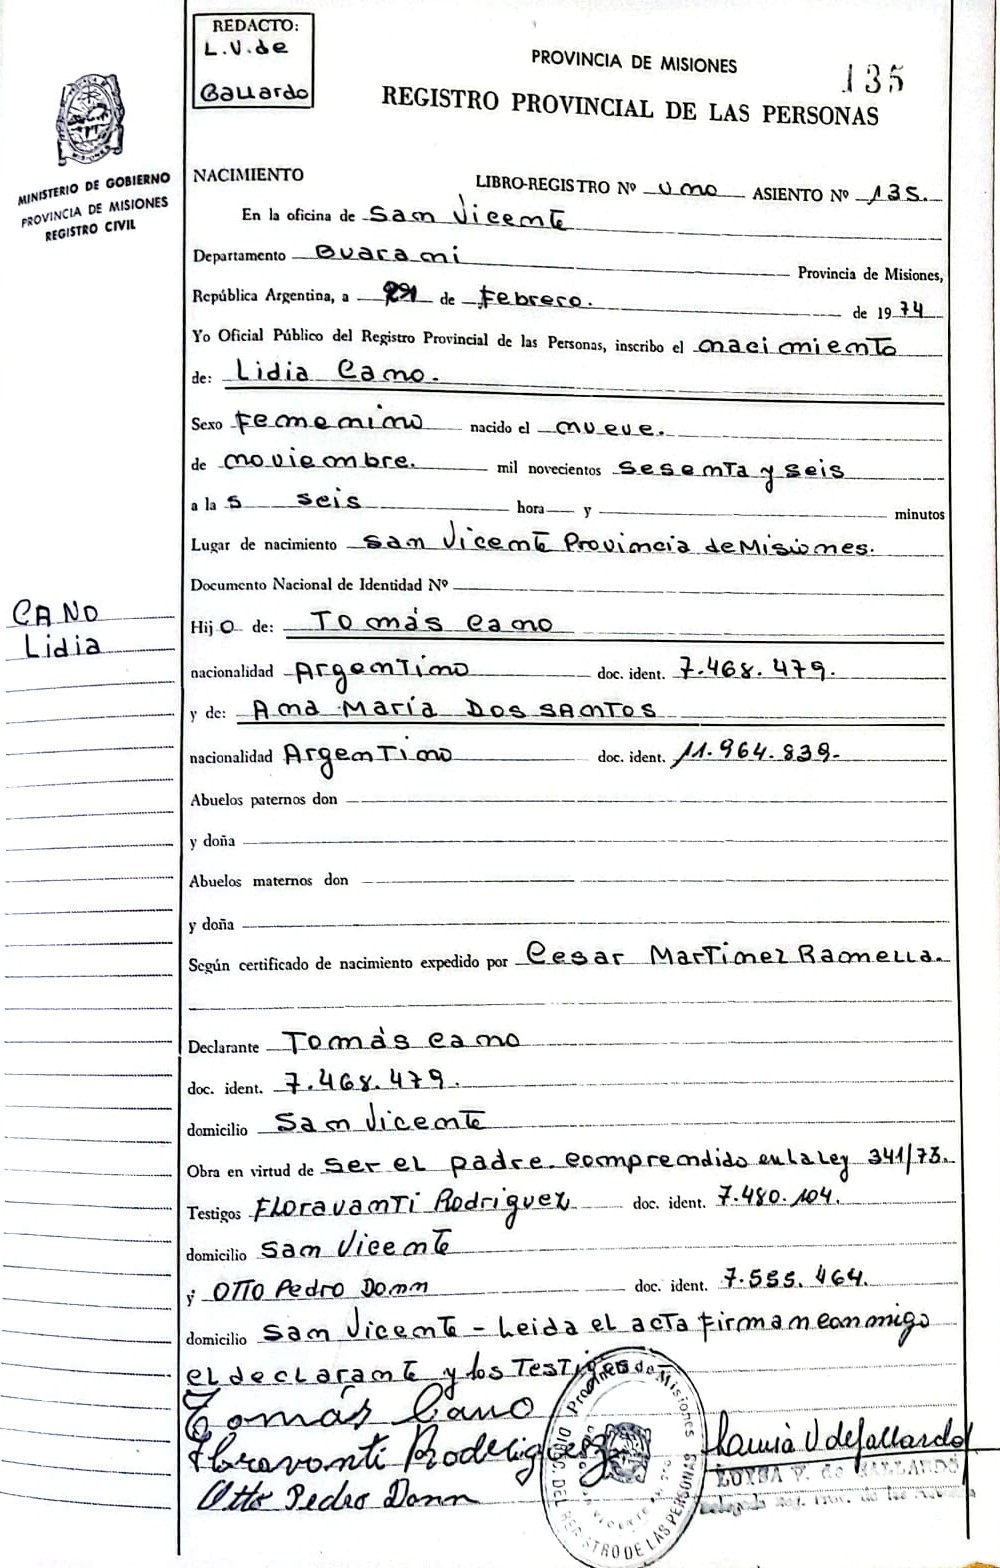 REDACTO:
L.V. de
Gallardo
PROVINCIA DE MISIONES
135
REGISTRO PROVINCIAL DE LAS PERSONAS
MINISTERIO DE GOBIERNO
PROVINCIA DE MISIONES
REGISTRO CIVIL
NACIMIENTO
LIBRO-REGISTRO Nº uno ASIENTO Nº 135.
En la oficina de San Vicente
Departamento Guarani
Provincia de Misiones,
República Argentina, a de Febrero. de 1974
Yo Oficial Público del Registro Provincial de las Personas, inscribo el nacimiento
de: Lidia Cano.
Sexo Femenino nacido el nueve.
de noviembre. mil novecientos sesenta y seis
a la s seis hora y minutos
Lugar de nacimiento San Vicente Provincia de Misiones.
Documento Nacional de Identidad Nº
CANO
Lidia
Hijo de: Tomás Cano
nacionalidad Argentino doc. ident. 7.468.479.
y de: Ana María Dos Santos
nacionalidad Argentino doc. ident. 11.964.839.
Abuelos paternos don
y doña
Abuelos maternos don
y doña
Según certificado de nacimiento expedido por Cesar Martinez Ramella.
Declarante Tomás Cano
doc. ident. 7.468.479.
domicilio San Vicente
Obra en virtud de ser el padre. comprendido en la Ley 341/73.
Testigos Floravanti Rodriguez doc. ident. 7.480.104.
domicilio San Vicente
y Otto Pedro Donn doc. ident. 7.555.464.
domicilio San Vicente - Leida el acta firman conmigo
el declarante y los testigos
Tomás Cano
Floravanti Rodriguez
Otto Pedro Donn
Provincia de Misiones
DEL REGISTRO DE LAS PERSONAS
V de Gallardo
LUYSA V. de GALLARDO